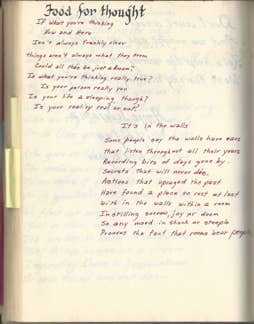 Food for thought
If what you're thinking
Now and Here
Isn't always frankly clear
things aren't always what they seem
Could all this be just a dream?
Is what you're thinking really true?
Is your person really you
Is your life a sleeping thought?
Is your reality real or not?
It's in the walls
Some people say the walls have ears
that listen throughout all their years
Recording bits of days gone by.
Secrets that will never die.
Actions that upraged the past
Have found a place to rest at last
With in the walls within a room
Instilling sorrow, joy or doom
So any mood in shack or steeple
Proves the fact that rooms wear people